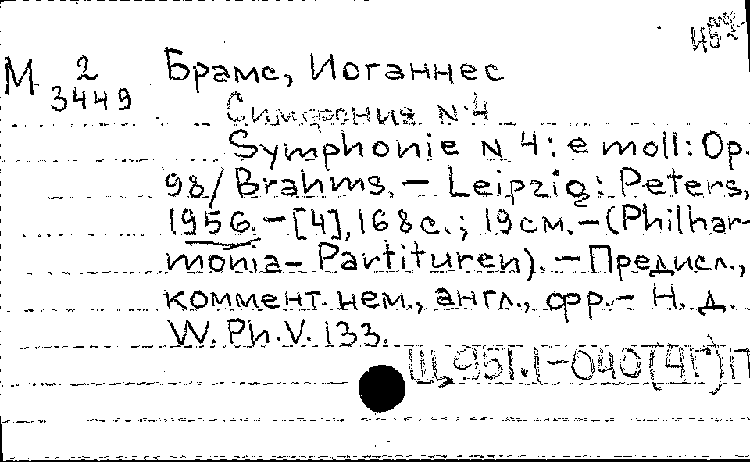 М 2 Брамс, Иоганнес
3449
Симфония N 4
Symphonie N 4: e moll: Op.
98/ Brahms. – Leipzig: Peters,
1956. – [4], 168 с.; 19 см. – (Philhar-
monia – Partituren). – Предисл.,
коммент. нем., англ., фр. – Н. д.
W. Ph. V. 133.
Щ951.1-040(4Г)П